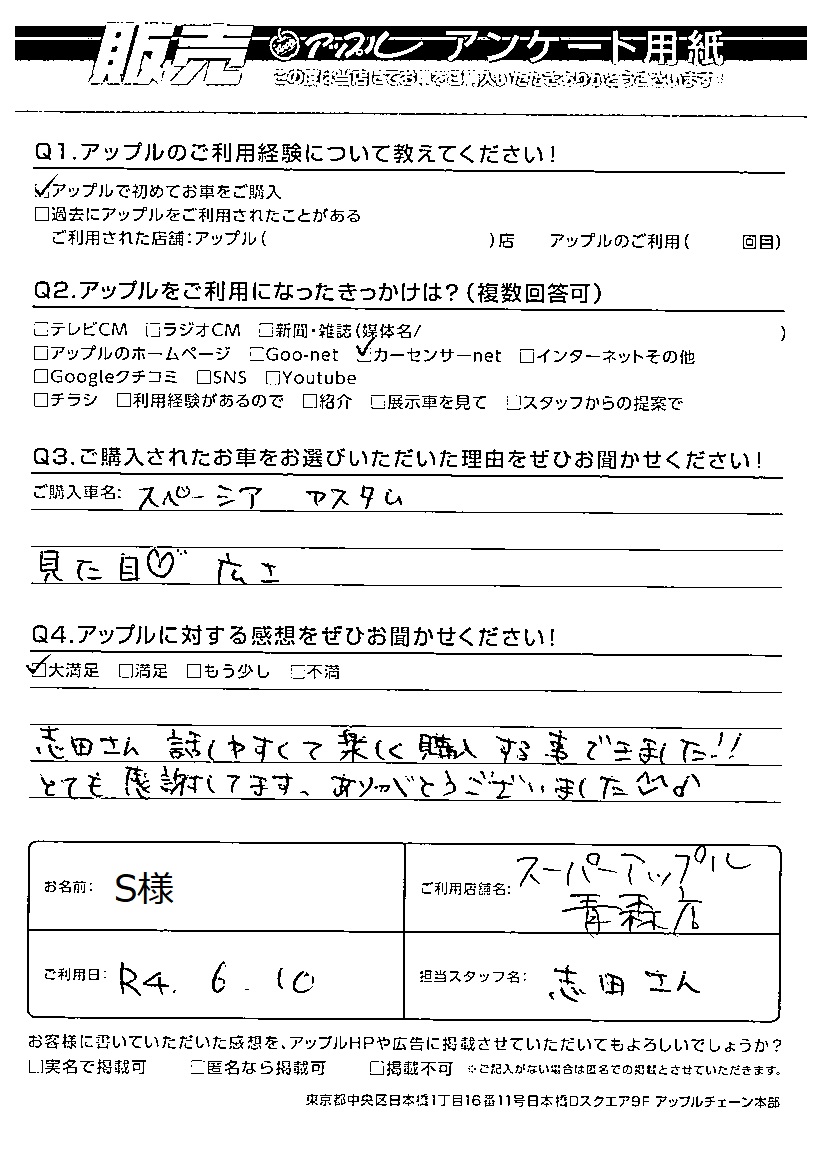 販売 アップル アンケート用紙
この度は当店にてお車をご購入いただきありがとうございます
Q1.アップルのご利用経験について教えてください!
☑アップルで初めてお車をご購入
□過去にアップルをご利用されたことがある
ご利用された店舗:アップル( )店 アップルのご利用( 回目)
Q2.アップルをご利用になったきっかけは?(複数回答可)
□テレビCM □ラジオCM □新聞・雑誌(媒体名/ )
□アップルのホームページ □Goo-net ☑カーセンサーnet □インターネットその他
□Googleクチコミ □SNS □Youtube
□チラシ □利用経験があるので □紹介 □展示車を見て □スタッフからの提案で
Q3.ご購入されたお車をお選びいただいた理由をぜひお聞かせください!
ご購入車名: スペーシア カスタム
見た目♡ 広さ
Q4.アップルに対する感想をぜひお聞かせください!
☑大満足 □満足 □もう少し □不満
志田さん 話しやすくて楽しく購入する事できました!!
とても感謝してます、ありがとうございました♡♪
お名前: S様
ご利用店舗名: スーパーアップル
青森店
ご利用日: R4. 6. 10
担当スタッフ名: 志田さん
お客様に書いていただいた感想を、アップルHPや広告に掲載させていただいてもよろしいでしょうか?
□実名で掲載可 □匿名なら掲載可 □掲載不可 ※ご記入がない場合は匿名での掲載とさせていただきます。
東京都中央区日本橋1丁目16番11号日本橋Dスクエア9F アップルチェーン本部